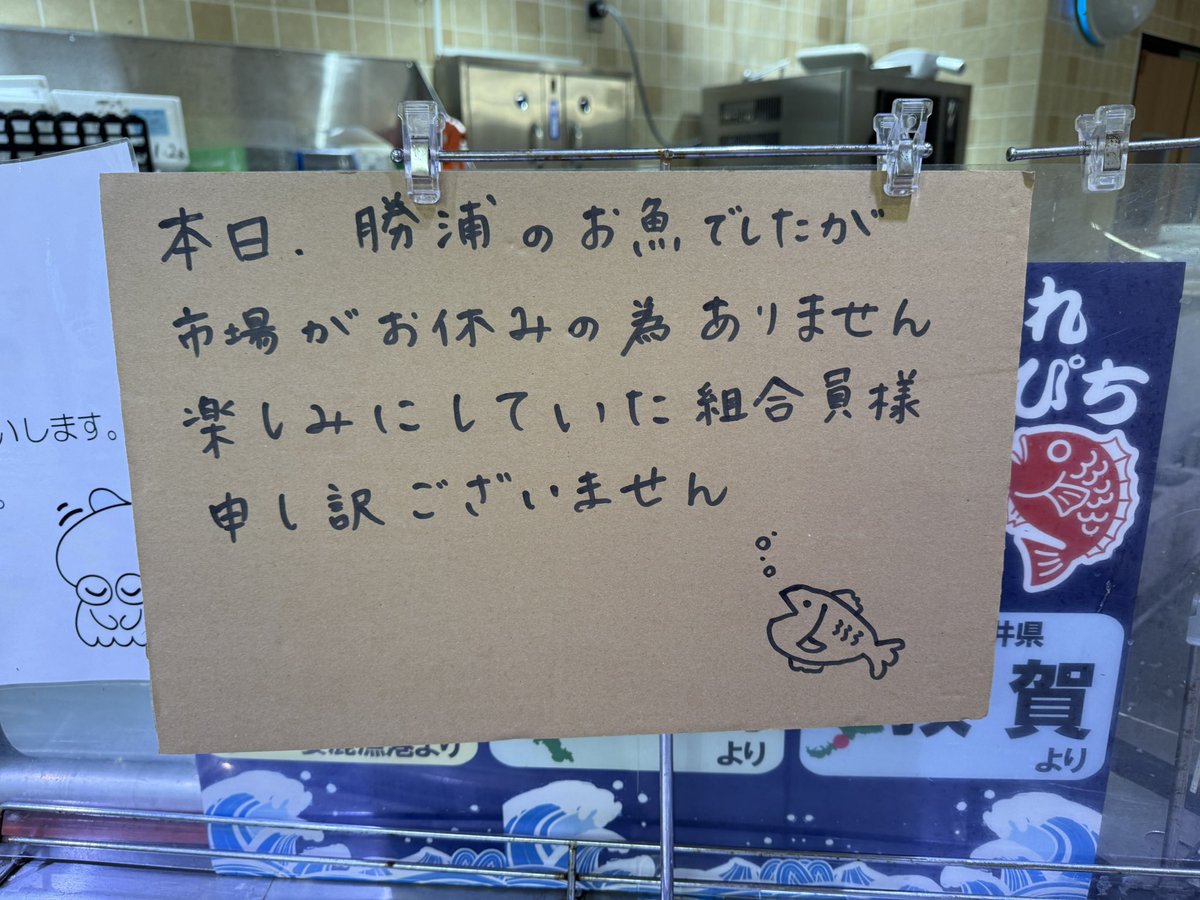 本日、勝浦のお魚でしたが
市場がお休みの為ありません
楽しみにしていた組合員様
申し訳ございません
いします。
れ
ぴち
井県
賀
より
より
漁港より